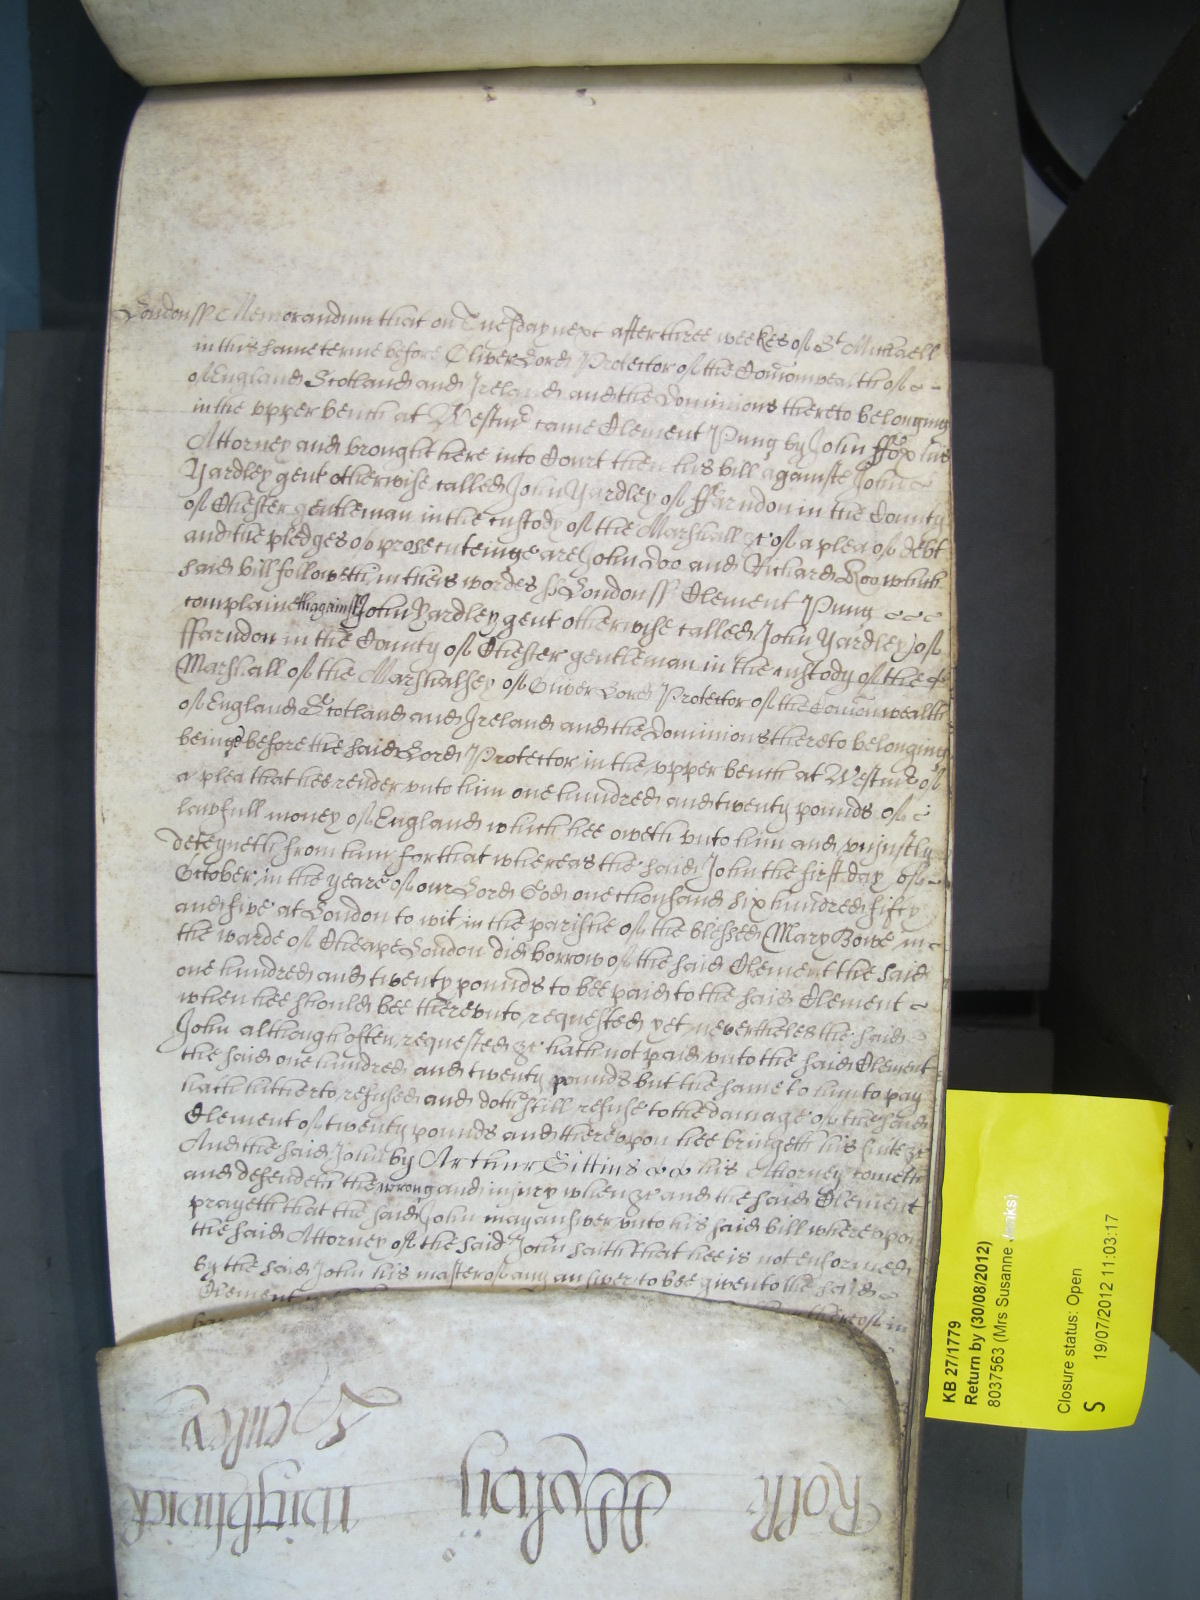 London ss Memorandum that on Tuesday next after three weekes of St Michaell
in this same terme before Oliver Lord Protector of the Comonwealth of
of England Scotland and Ireland and the Dominions thereto belonging
in the vpper bench at Westmr came Clement Pung by John ffox his
Attorney and brought here into Court then his bill againste John
Yardley gent otherwise called John Yardley of ffarndon in the County
of Chester gentleman in the custody of the Marshall &c of a plea of debt
and the pledges of prosecuteinge are John Doo and Richard Roo which
said bill followeth in theis wordes ss London ss Clement Pung
complaineth against John Yardley gent otherwise called John Yardley of
ffarndon in the County of Chester gentleman in the custody of the
Marshall of the Marshalsey of Oliver Lord Protector of the Comonwealth
of England Scotland and Ireland and the Dominions thereto belonging
beinge before the said Lord Protector in the vpper bench at Westmr of
a plea that hee render vnto him one hundred and twenty pounds of
lawfull money of England which hee oweth vnto him and vniustly
deteyneth from him for that whereas the said John the first day of
October in the yeare of our Lord God one thousand six hundred fifty
and five at London to wit in the parishe of the blessed Mary Bowe in
the warde of Cheape London did borrow of the said Clement the said
one hundred and twenty pounds to bee paid to the said Clement
when hee should bee therevnto requested yet neverthelesthe said
John although often requested &c hath not paid vnto the said Clement
the said one hundred and twenty pounds but the same to him to pay
hath hitherto refused and doth still refuse to the damage of the said
Clement of twenty pounds and therevpon hee bringeth his suite &c
And the said John by Arthur Gittins his Attorney cometh
and defendeth the wrong and iniury when &c and the said Clement
prayeth that the said John may answer vnto his said bill wherevpon
the said Attorney of the said John saith that hee is not enformed
by the said John his master of any answer to bee given to the said
Clement
thereof in
Rolls
wightwick
KB 27/1779
Return by (30/08/2012)
8037563 (Mrs Susanne
Closure status: Open
S 19/07/2012 11:03:17